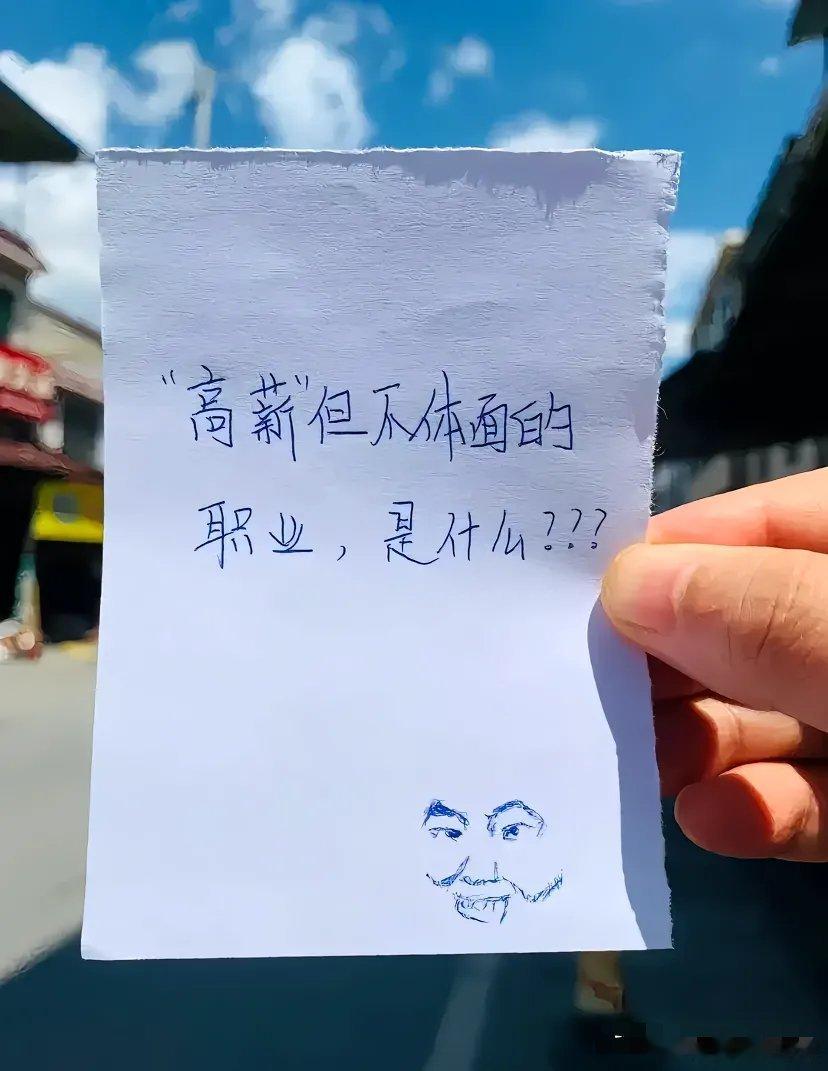 “高薪”但不体面的
职业，是什么???